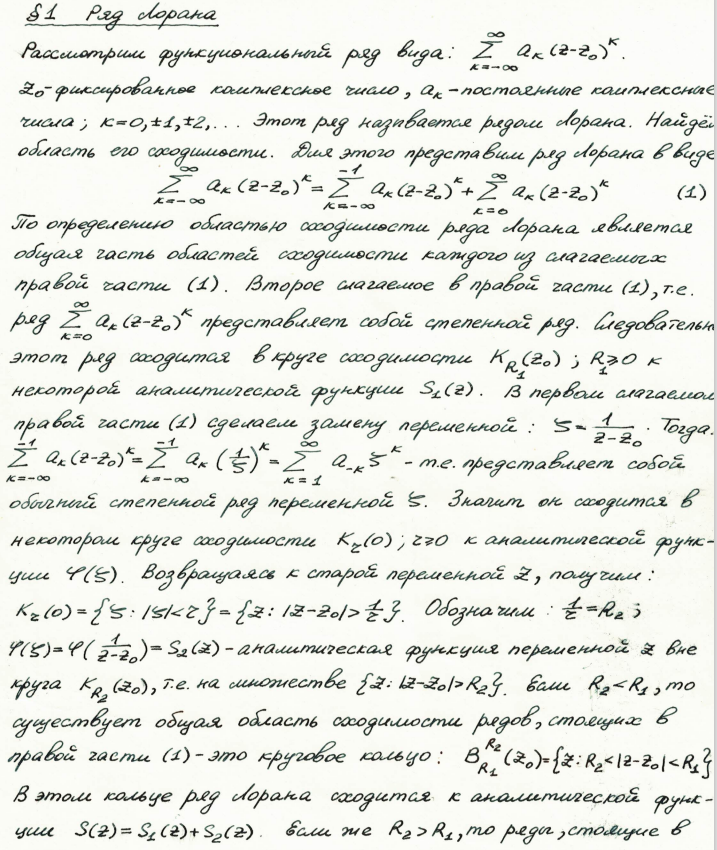 §1 Ряд Лорана
Рассмотрим функциональный ряд вида: $\sum_{k=-\infty}^{\infty} a_k (z-z_0)^k$.
$z_0$-фиксированное комплексное число, $a_k$-постоянные комплексные
числа; $k=0,\pm1,\pm2,\ldots$ Этот ряд называется рядом Лорана. Найдё
область его сходимости. Для этого представим ряд Лорана в виде
$\sum_{k=-\infty}^{\infty} a_k (z-z_0)^k = \sum_{k=-\infty}^{-1} a_k (z-z_0)^k + \sum_{k=0}^{\infty} a_k (z-z_0)^k$ (1)
По определению областью сходимости ряда Лорана является
общая часть областей сходимости каждого из слагаемых
правой части (1). Второе слагаемое в правой части (1), т.е.
ряд $\sum_{k=0}^{\infty} a_k (z-z_0)^k$ представляет собой степенной ряд. Следовательн
этот ряд сходится в круге сходимости $K_{R_1}(z_0)$; $R_1 \geqslant 0$ к
некоторой аналитической функции $S_1(z)$. В первом слагаемом
правой части (1) сделаем замену переменной: $\zeta = \frac{1}{z-z_0}$. Тогда:
$\sum_{k=-\infty}^{-1} a_k (z-z_0)^k = \sum_{k=-\infty}^{-1} a_k \left(\frac{1}{\zeta}\right)^k = \sum_{k=1}^{\infty} a_{-k} \zeta^k$ - т.е. представляет собой
обычный степенной ряд переменной $\zeta$. Значит он сходится в
некотором круге сходимости $K_r(0)$; $r \geqslant 0$ к аналитической функ-
ции $\varphi(\zeta)$. Возвращаясь к старой переменной $z$, получим:
$K_r(0) = \{\zeta: |\zeta|<r\} = \{z: |z-z_0|>\frac{1}{r}\}$. Обозначим: $\frac{1}{r}=R_2$;
$\varphi(\zeta)=\varphi\left(\frac{1}{z-z_0}\right)=S_2(z)$ - аналитическая функция переменной $z$ вне
круга $K_{R_2}(z_0)$, т.е. на множестве $\{z: |z-z_0|>R_2\}$. Если $R_2<R_1$, то
существует общая область сходимости рядов, стоящих в
правой части (1) - это круговое кольцо: $B_{R_1}^{R_2}(z_0)=\{z: R_2<|z-z_0|<R_1\}$
В этом кольце ряд Лорана сходится к аналитической функ-
ции $S(z)=S_1(z)+S_2(z)$. Если же $R_2>R_1$, то ряды, стоящие в